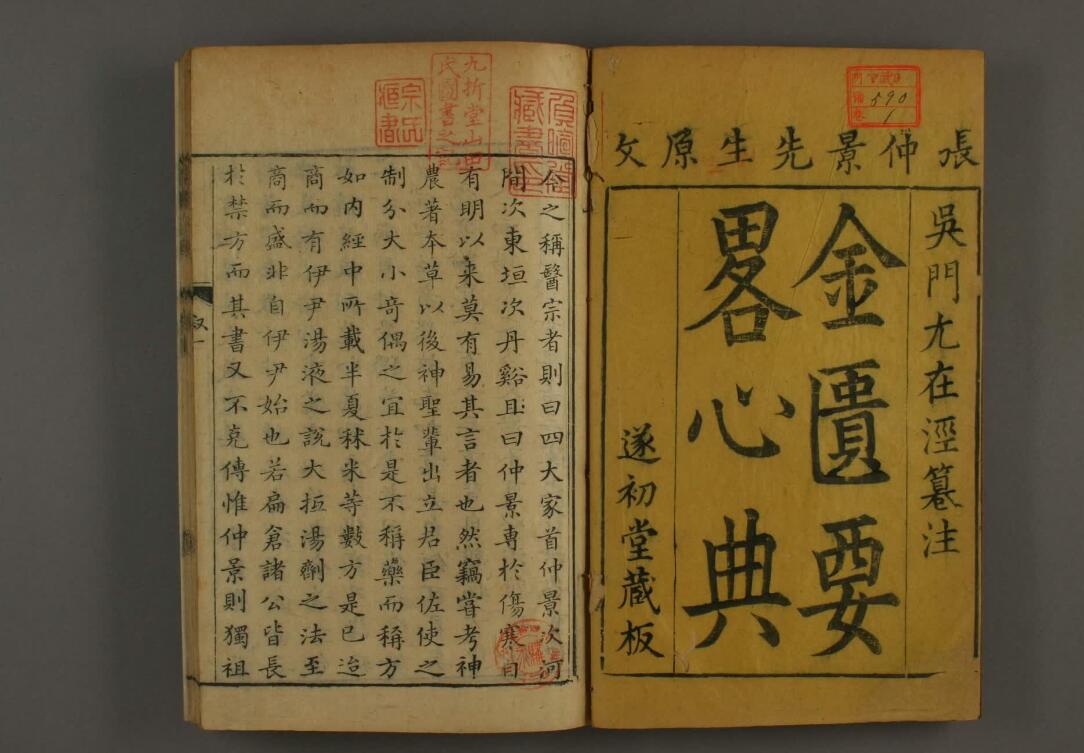 張仲景先生原文
吳門尤在涇纂注
金匱要
畧心典
遂初堂藏板
590
1
今之稱醫宗者則曰四大家首仲景次河
間次東垣次丹谿且曰仲景專於傷寒自
有明以来莫有易其言者也然竊嘗考神
農著本草以後神聖輩出立君臣佐使之
制分大小奇偶之宜於是不稱藥而稱方
如内經中所載半夏秫米等數方是已迨
商而有伊尹湯液之說大抵湯劑之法至
商而盛非自伊尹始也若扁倉諸公皆長
於禁方而其書又不克傳惟仲景則獨祖
九折堂山田
氏圖書之記
宗氏
藏書
藏書
叙
一